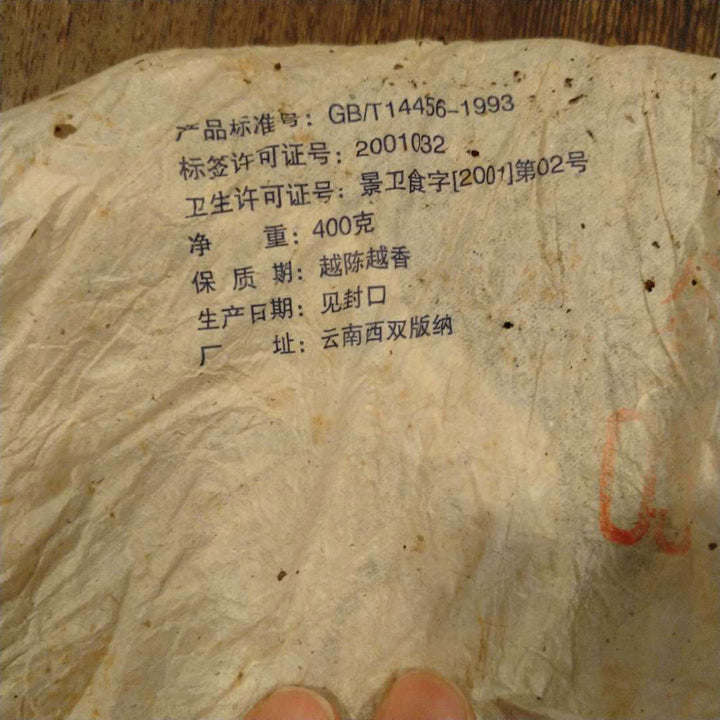 产品标准号：GB/T14456-1993
标签许可证号：2001032
卫生许可证号：景卫食字[2001]第02号
净　　重：400克
保 质 期：越陈越香
生产日期：见封口
厂　　址：云南西双版纳